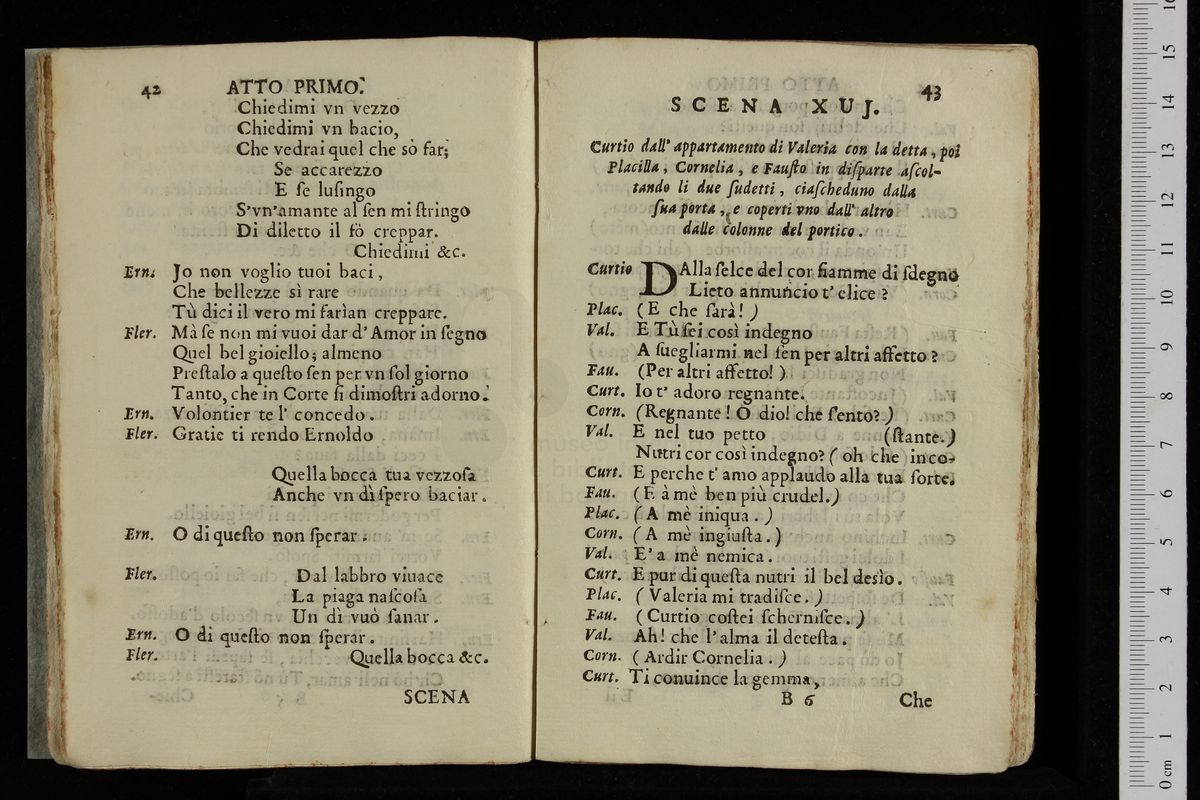 42 ATTO PRIMO.
Chiedimi vn vezzo
Chiedimi vn bacio,
Che vedrai quel che sò far;
Se accarezzo
E ſe luſingo
S'vn'amante al ſen mi ſtringo
Di diletto il fò creppar.
Chiedimi &c.
Ern. Jo non voglio tuoi baci,
Che bellezze sì rare
Tù dici il vero mi farìan creppare.
Fler. Mà ſe non mi vuoi dar d'Amor in ſegno
Quel bel gioiello; almeno
Preſtalo a queſto ſen per vn ſol giorno
Tanto, che in Corte ſi dimoſtri adorno.
Ern. Volontier te l' concedo.
Fler. Gratie ti rendo Ernoldo
Quella bocca tua vezzoſa
Anche vn dì ſpero baciar.
Ern. O di queſto non ſperar.
Fler. Dal labbro viuace
La piaga naſcoſa
Un dì vuò ſanar.
Ern. O di queſto non ſperar.
Fler. Quella bocca &c.
SCENA
43
SCENA XUJ.
Curtio dall' appartamento di Valeria con la detta, poi
Placilla, Cornelia, e Fauſto in diſparte aſcol-
tando li due ſudetti, ciaſcheduno dalla
ſua porta, e coperti vno dall' altro
dalle colonne del portico.
Curtio DAlla ſelce del cor fiamme di ſdegno
Lieto annuncio t'elice?
Plac. (E che ſarà!)
Val. E Tù ſei così indegno
A ſuegliarmi nel ſen per altri affetto?
Fau. (Per altri affetto!)
Curt. Io t' adoro regnante.
Corn. (Regnante! O dio! che ſento?)
Val. E nel tuo petto (ſtante.)
Nutri cor così indegno? (oh che inco-
Curt. E perche t' amo applaudo alla tua ſorte.
Fau. (E à mè ben più crudel.)
Plac. (A mè iniqua.)
Corn. (A mè ingiuſta.)
Val. E' a mè nemica.
Curt. E pur di queſta nutri il bel desìo.
Plac. (Valeria mi tradiſce.)
Fau. (Curtio coſtei ſcherniſce.)
Val. Ah! che l'alma il deteſta.
Corn. (Ardir Cornelia.)
Curt. Ti conuince la gemma,
B 6 Che
0 cm 1 2 3 4 5 6 7 8 9 10 11 12 13 14 15